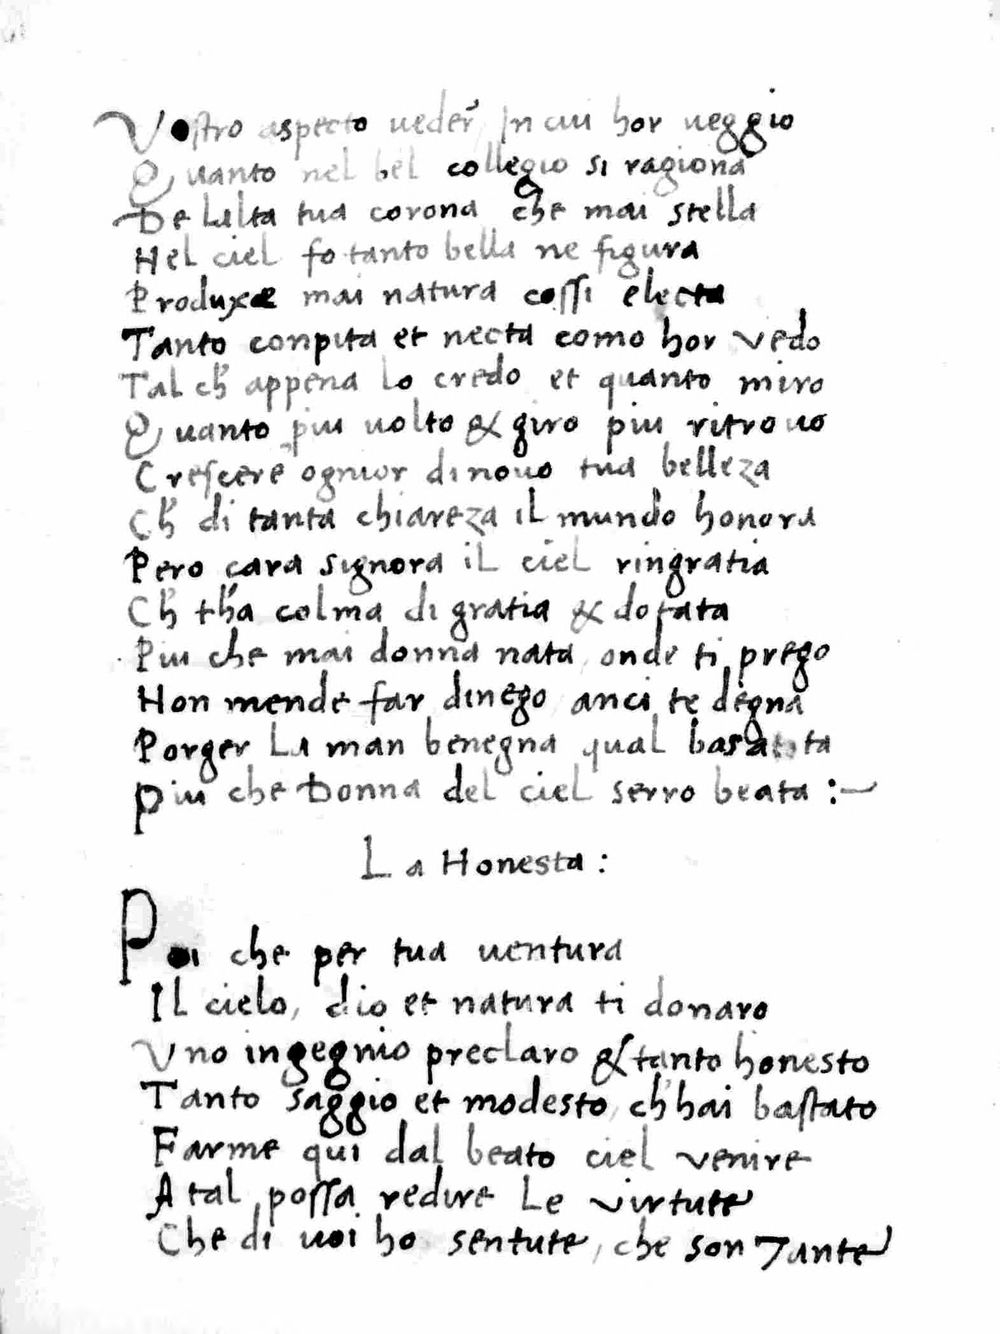 Vostro aspecto ueder In cui hor ueggio
Quanto nel bel collegio si ragiona
De lalta tua corona che mai stella
Nel ciel fo tanto bella ne figura
Produxe mai natura cossi electa
Tanto conpita et necta como hor vedo
Tal ch' appena lo credo et quanto miro
Quanto piu uolto & giro piu ritrouo
Crescere ognior di nouo tua belleza
Ch' di tanta chiareza il mundo honora
Pero cara signora il ciel ringratia
Ch' tha colma di gratia & dotata
Piu che mai donna nata, onde ti prego
Non mende far dinego, anci te degna
Porger La man benegna qual
Piu che Donna del ciel serro beata :~
La Honesta :
Poi che per tua uentura
Il cielo, dio et natura ti donaro
Vno ingegnio preclaro & tanto honesto
Tanto saggio et modesto, ch' hai bastato
Farme qui dal beato ciel venire
A tal possa redire Le virtute
Che di uoi ho sentute, che son Tante